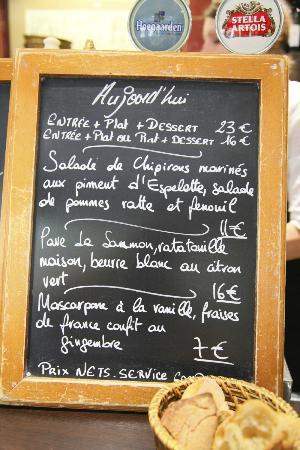 Hoegaarden
STELLA
ARTOIS
Aujourd'hui
ENTRÉE + Plat + DESSERT 23 €
ENTRÉE + Plat ou Plat + DESSERT 16 €
Salade de Chipirons marinés
aux piment d'Espelette, salade
de pommes ratte et fenouil
11 €
Pave de Saumon, ratatouille
maison, beurre blanc au citron
vert
16 €
Mascarpone à la vanille, fraises
de france confit au
gingembre
7 €
PRIX NETS. SERVICE